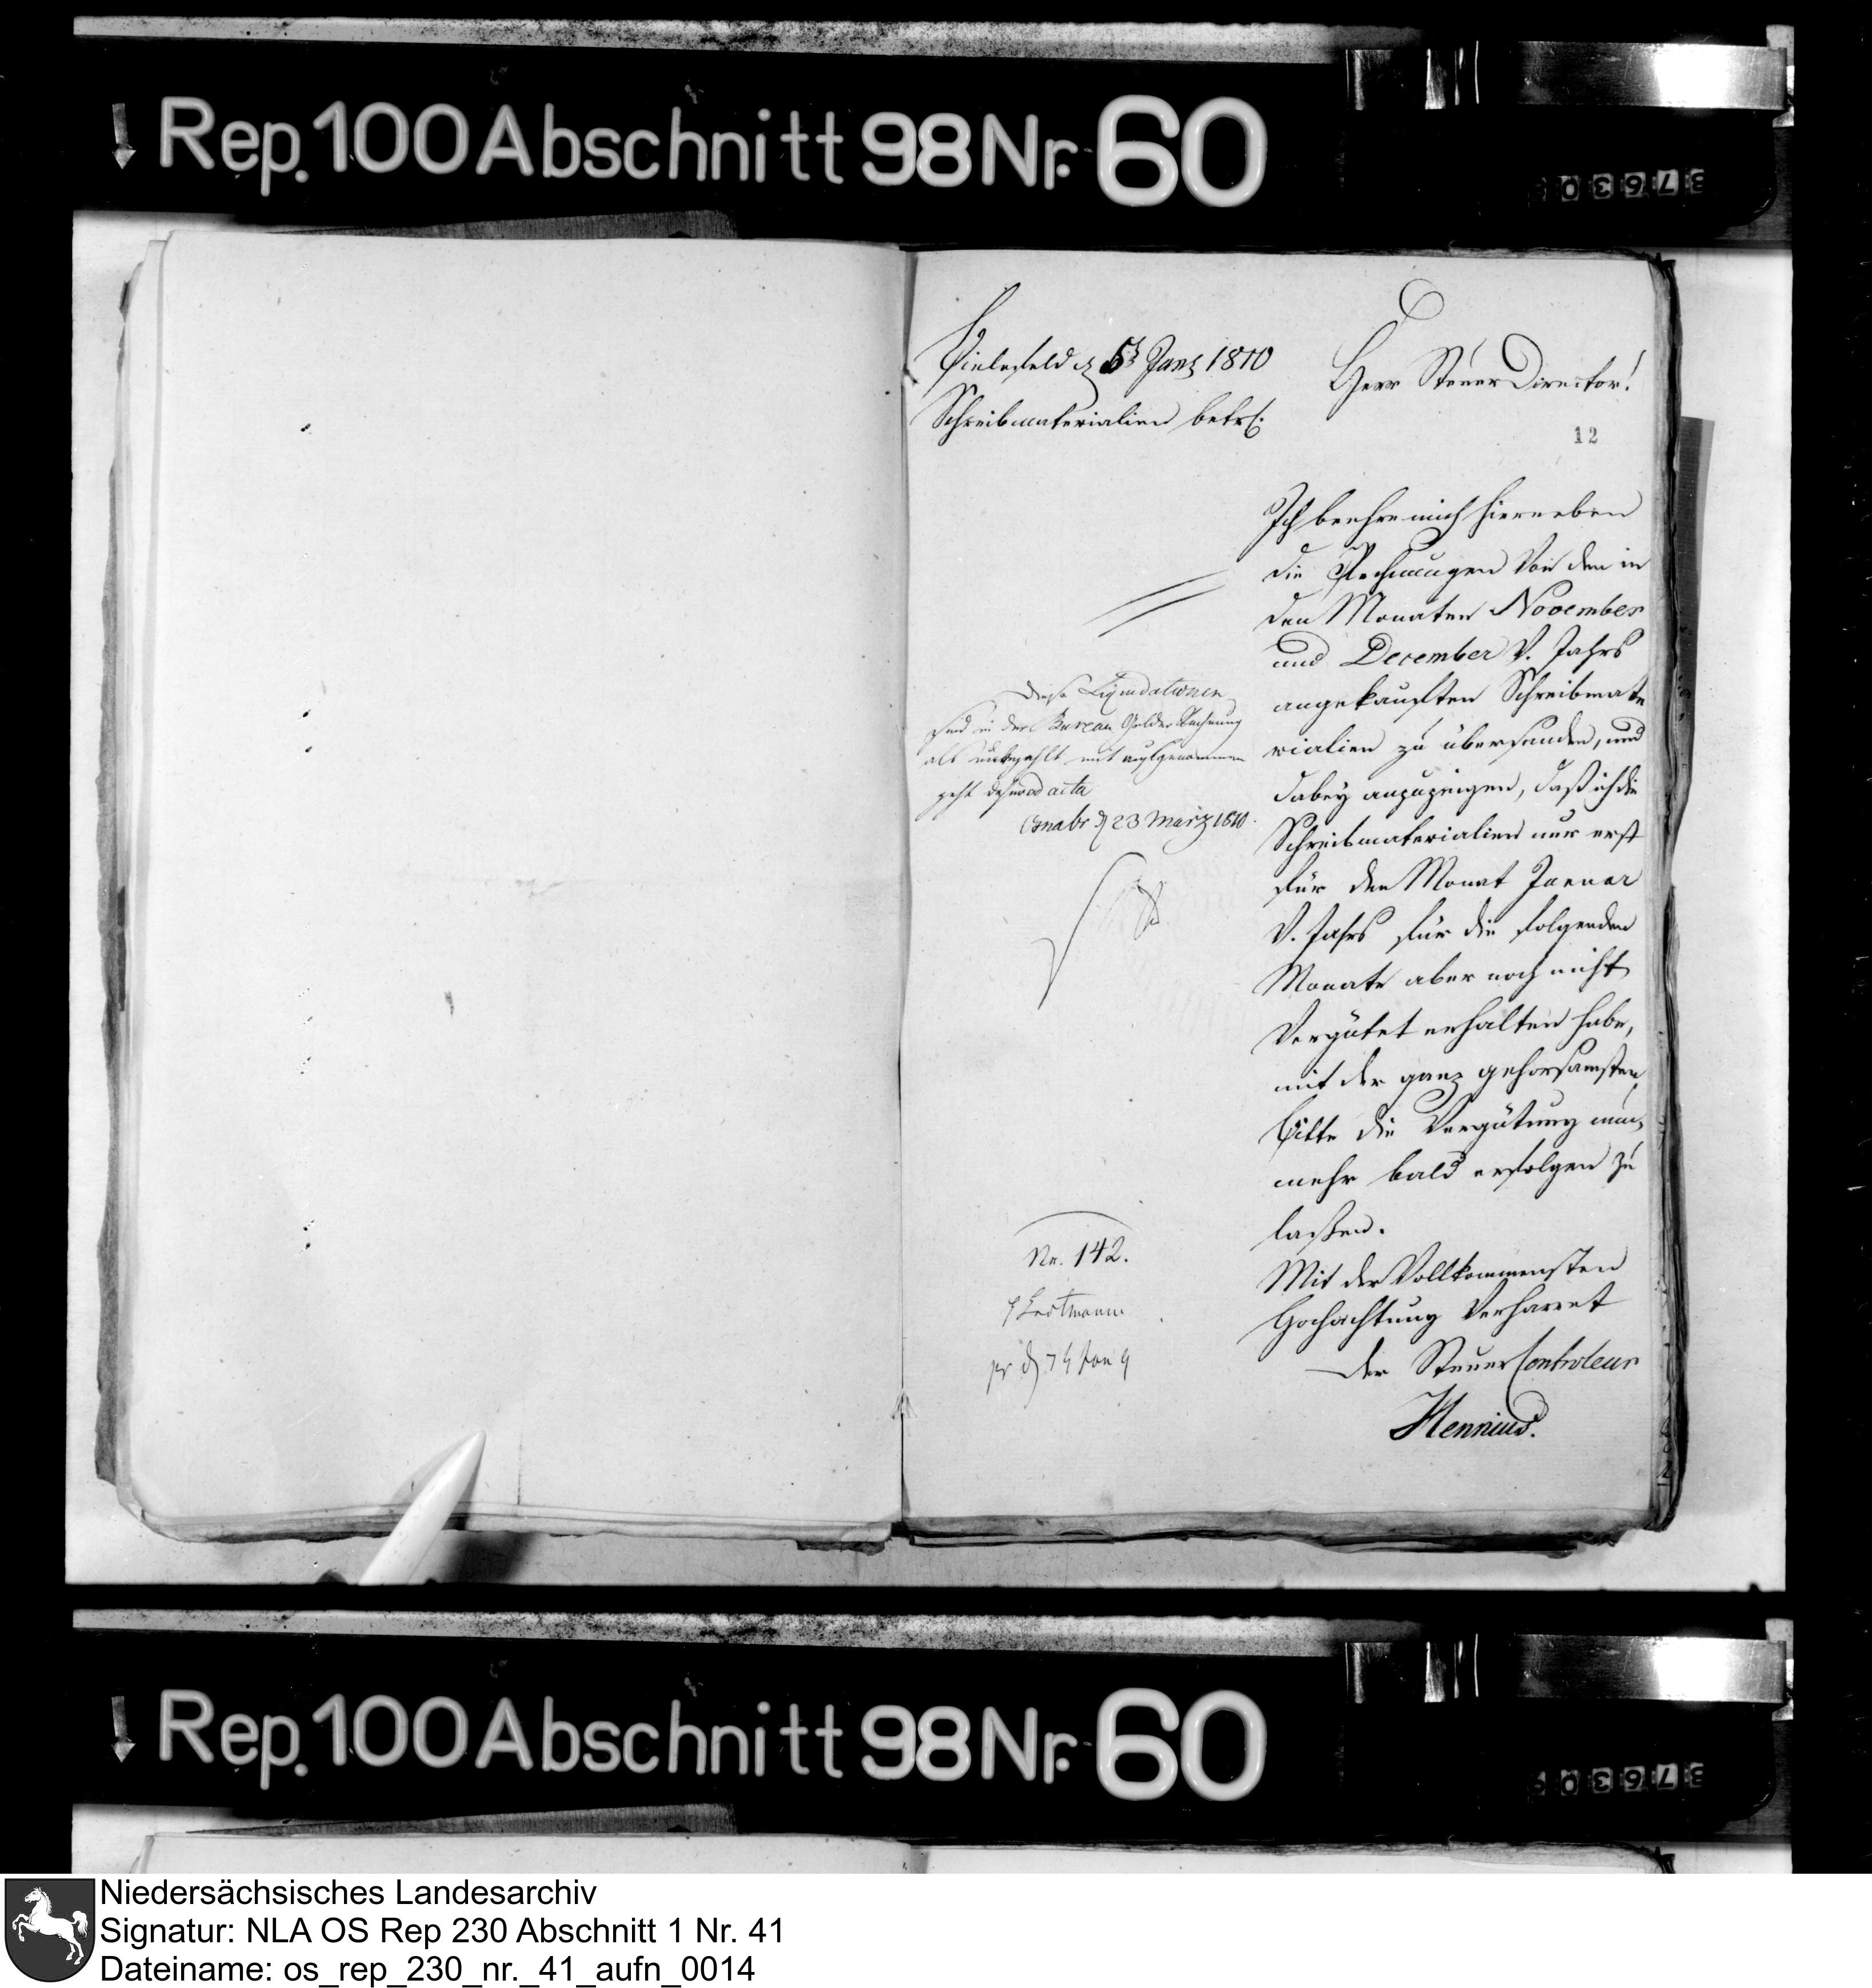 Rep. 100 Abschnitt 98 Nr. 60
37630
Bielefeld d 5t Janr 1810
Schreibmaterialien betrf.
Herr Steuer Director!
12
Ich beehre mich hierneben
die Rechnungen von den in
den Monaten November
und December v. Jahrs
angekauften Schreibmate
rialien zu übersenden, und
dabey anzuzeigen, daß ich die
Schreibmaterialien nur erst
für den Monat Januar
v. Jahrs für die folgenden
Monate aber noch nicht
vergütet erhalten habe,
mit der ganz gehorsamsten
Bitte die Vergütung nun,
mehr bald erfolgen zu
laßen.
Mit der Vollkommensten
Hochachtung verharret
der Steuer Controleur
Hennius.
Diese Liquidationen
sind in der Bureau Gelder Rechnung
als unbezahlt mit aufgenommen
geht daher ad acta
Osnabr d 23 März 1810.
Nr. 142.
Rep. 100 Abschnitt 98 Nr. 60
37630
Niedersächsisches Landesarchiv
Signatur: NLA OS Rep 230 Abschnitt 1 Nr. 41
Dateiname: os_rep_230_nr._41_aufn_0014